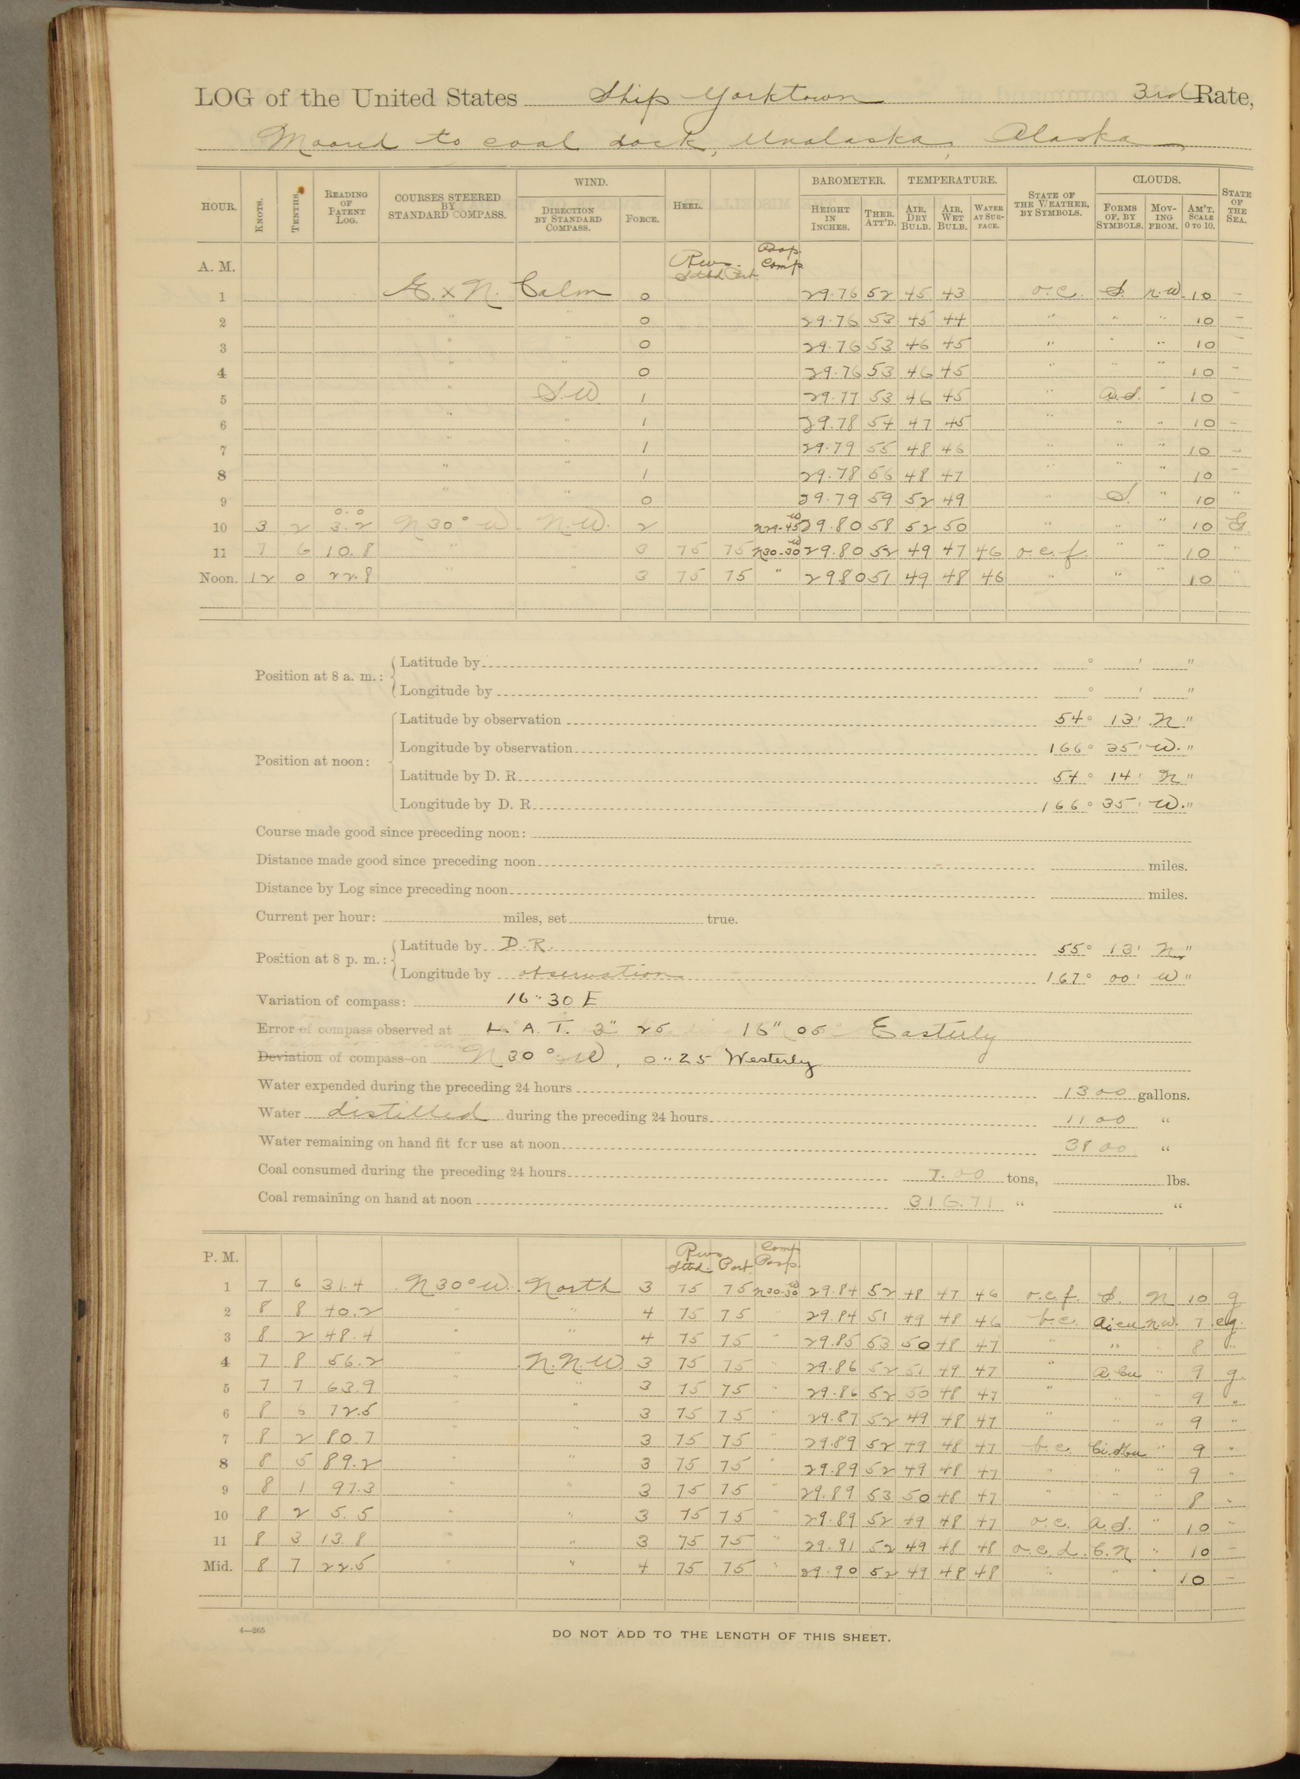 LOG of the United States Ship Yorktown 3rd Rate,
Moored to coal dock, Unalaska, Alaska
HOUR. KNOTS. TENTHS. READING OF PATENT LOG. COURSES STEERED BY STANDARD COMPASS. WIND. DIRECTION BY STANDARD COMPASS. FORCE. HEEL. BAROMETER. HEIGHT IN INCHES. THER. ATT'D. TEMPERATURE. AIR, DRY BULB. AIR, WET BULB. WATER AT SURFACE. STATE OF THE WEATHER, BY SYMBOLS. CLOUDS. FORMS OF, BY SYMBOLS. MOVING FROM. AM'T. SCALE 0 TO 10. STATE OF THE SEA.
A. M. Revs. Stbd Port Poop Comp
1 E. x N. Calm 0 29.76 52 45 43 o.c. S. N.W. 10 –
2 " " 0 29.76 53 45 44 " " " 10 –
3 " " 0 29.76 53 46 45 " " " 10 –
4 " " 0 29.76 53 46 45 " " " 10 –
5 " S.W 1 29.77 53 46 45 " a.S. " 10 –
6 " " 1 29.78 54 47 45 " " " 10 –
7 " " 1 29.79 55 48 46 " " " 10 –
8 " " 1 29.78 56 48 47 " " " 10 –
9 " " 0 29.79 59 52 49 " S. " 10 "
10 3 2 0.0 3.2 N30°W N.W. 2 N29-45W 29.80 58 52 50 " " " 10
11 7 6 10.8 " " 3 75 75 N30-30W 29.80 52 49 47 46 o.c.f. " " 10 "
Noon. 12 0 22.8 " " 3 75 75 " 29 80 51 49 48 46 " " " 10 "
Position at 8 a. m.: Latitude by ° ' "
Longitude by ° ' "
Position at noon: Latitude by observation 54° 13' N"
Longitude by observation 166° 35' W."
Latitude by D. R. 54° 14' N"
Longitude by D. R. 166° 35' W."
Course made good since preceding noon:
Distance made good since preceding noon miles.
Distance by Log since preceding noon miles.
Current per hour: miles, set true.
Position at 8 p. m.: Latitude by D.R. 55° 13' N"
Longitude by observation 167° 00' W"
Variation of compass: 16° 30 E
Error of compass observed at L. A. T. 3" 25 16" 05 Easterly
Deviation of compass on N 30° W, 0" 25 Westerly
Water expended during the preceding 24 hours 1300 gallons.
Water distilled during the preceding 24 hours 1100 "
Water remaining on hand fit for use at noon 3800 "
Coal consumed during the preceding 24 hours 7.00 tons, lbs.
Coal remaining on hand at noon 316.71 " "
P. M. Revs Stbd. Port. Comp Poop.
1 7 6 31.4 N30°W. North 3 75 75 N30-30W 29.84 52 48 47 46 o.c.f. S. N 10 g
2 8 8 40.2 " 4 75 75 " 29.84 51 49 48 46 b.c. N.W. 7
3 8 2 48.4 " " 4 75 75 " 29.85 53 50 48 47 " " " 8 "
4 7 8 56.2 N.N.W. 3 75 75 " 29.86 52 51 49 47 " a.Cu " 9 g.
5 7 7 63.9 " " 3 75 75 " 29.86 52 50 48 47 " " " 9 "
6 8 6 72.5 " " 3 75 75 " 29.87 52 49 48 47 " " " 9 "
7 8 2 80.7 " 3 75 75 " 29.89 52 49 48 47 b.c. " 9 "
8 8 5 89.2 " " 3 75 75 " 29.89 52 49 48 47 " " " 9 "
9 8 1 97.3 " " 3 75 75 " 29.89 53 50 48 47 " " " 8 "
10 8 2 5.5 " " 3 75 75 " 29.89 52 49 48 47 o.c. a.S. " 10 –
11 8 3 13.8 " " 3 75 75 " 29.91 52 49 48 48 o.c.d. C.N " 10 –
Mid. 8 7 22.5 " " 4 75 75 " 29.90 52 49 48 48 " " " 10 –
4—265
DO NOT ADD TO THE LENGTH OF THIS SHEET.